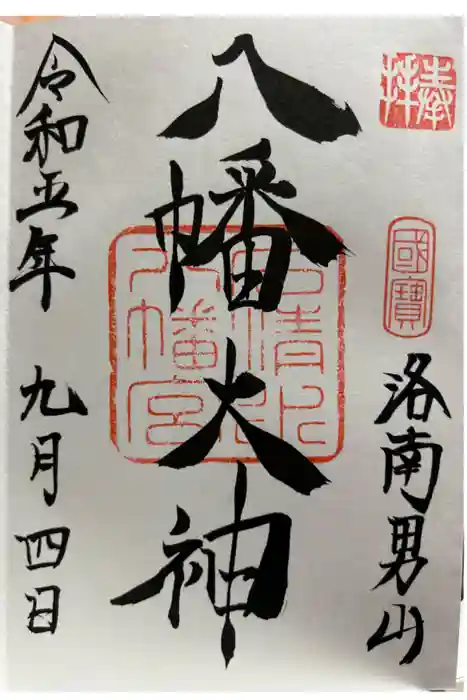 奉拝
國寶
洛南男山
八幡大神
石清水八幡宮
令和五年 九月四日